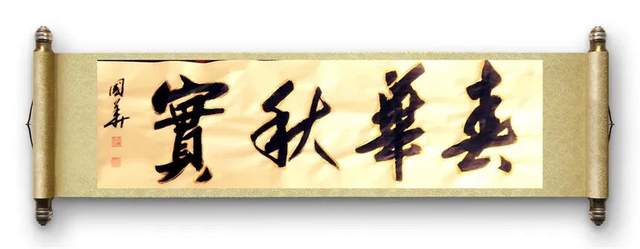 春華秋實
國華